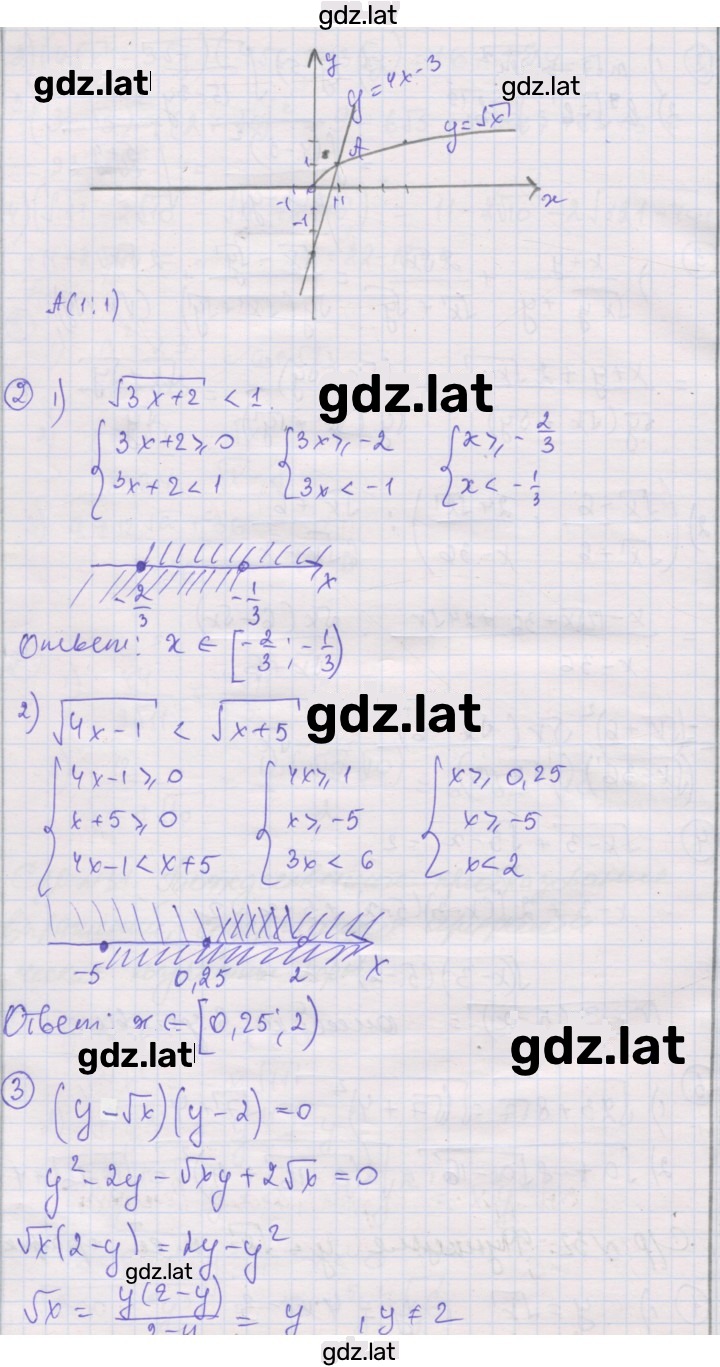 gdz.lat
gdz.lat
gdz.lat
y
y=4x-3
y=√x
A
1
-1
1
-1
x
A(1;1)
② 1) √(3x+2) < 1.
gdz.lat
{3x+2⩾0 {3x⩾-2 {x⩾-2/3
{3x+2<1 {3x<-1 {x<-1/3
-2/3 -1/3 x
Ответ: x ∈ [-2/3; -1/3)
2) √(4x-1) < √(x+5)
gdz.lat
{4x-1⩾0 {4x⩾1 {x⩾0,25
{x+5⩾0 {x⩾-5 {x⩾-5
{4x-1<x+5 {3x<6 {x<2
-5 0,25 2 x
Ответ: x ∈ [0,25; 2)
gdz.lat
gdz.lat
③ (y-√x)(y-2)=0
y²-2y-√xy+2√x=0
√x(2-y)=2y-y²
gdz.lat
√x = y(2-y)/(2-y) = y , y≠2
gdz.lat